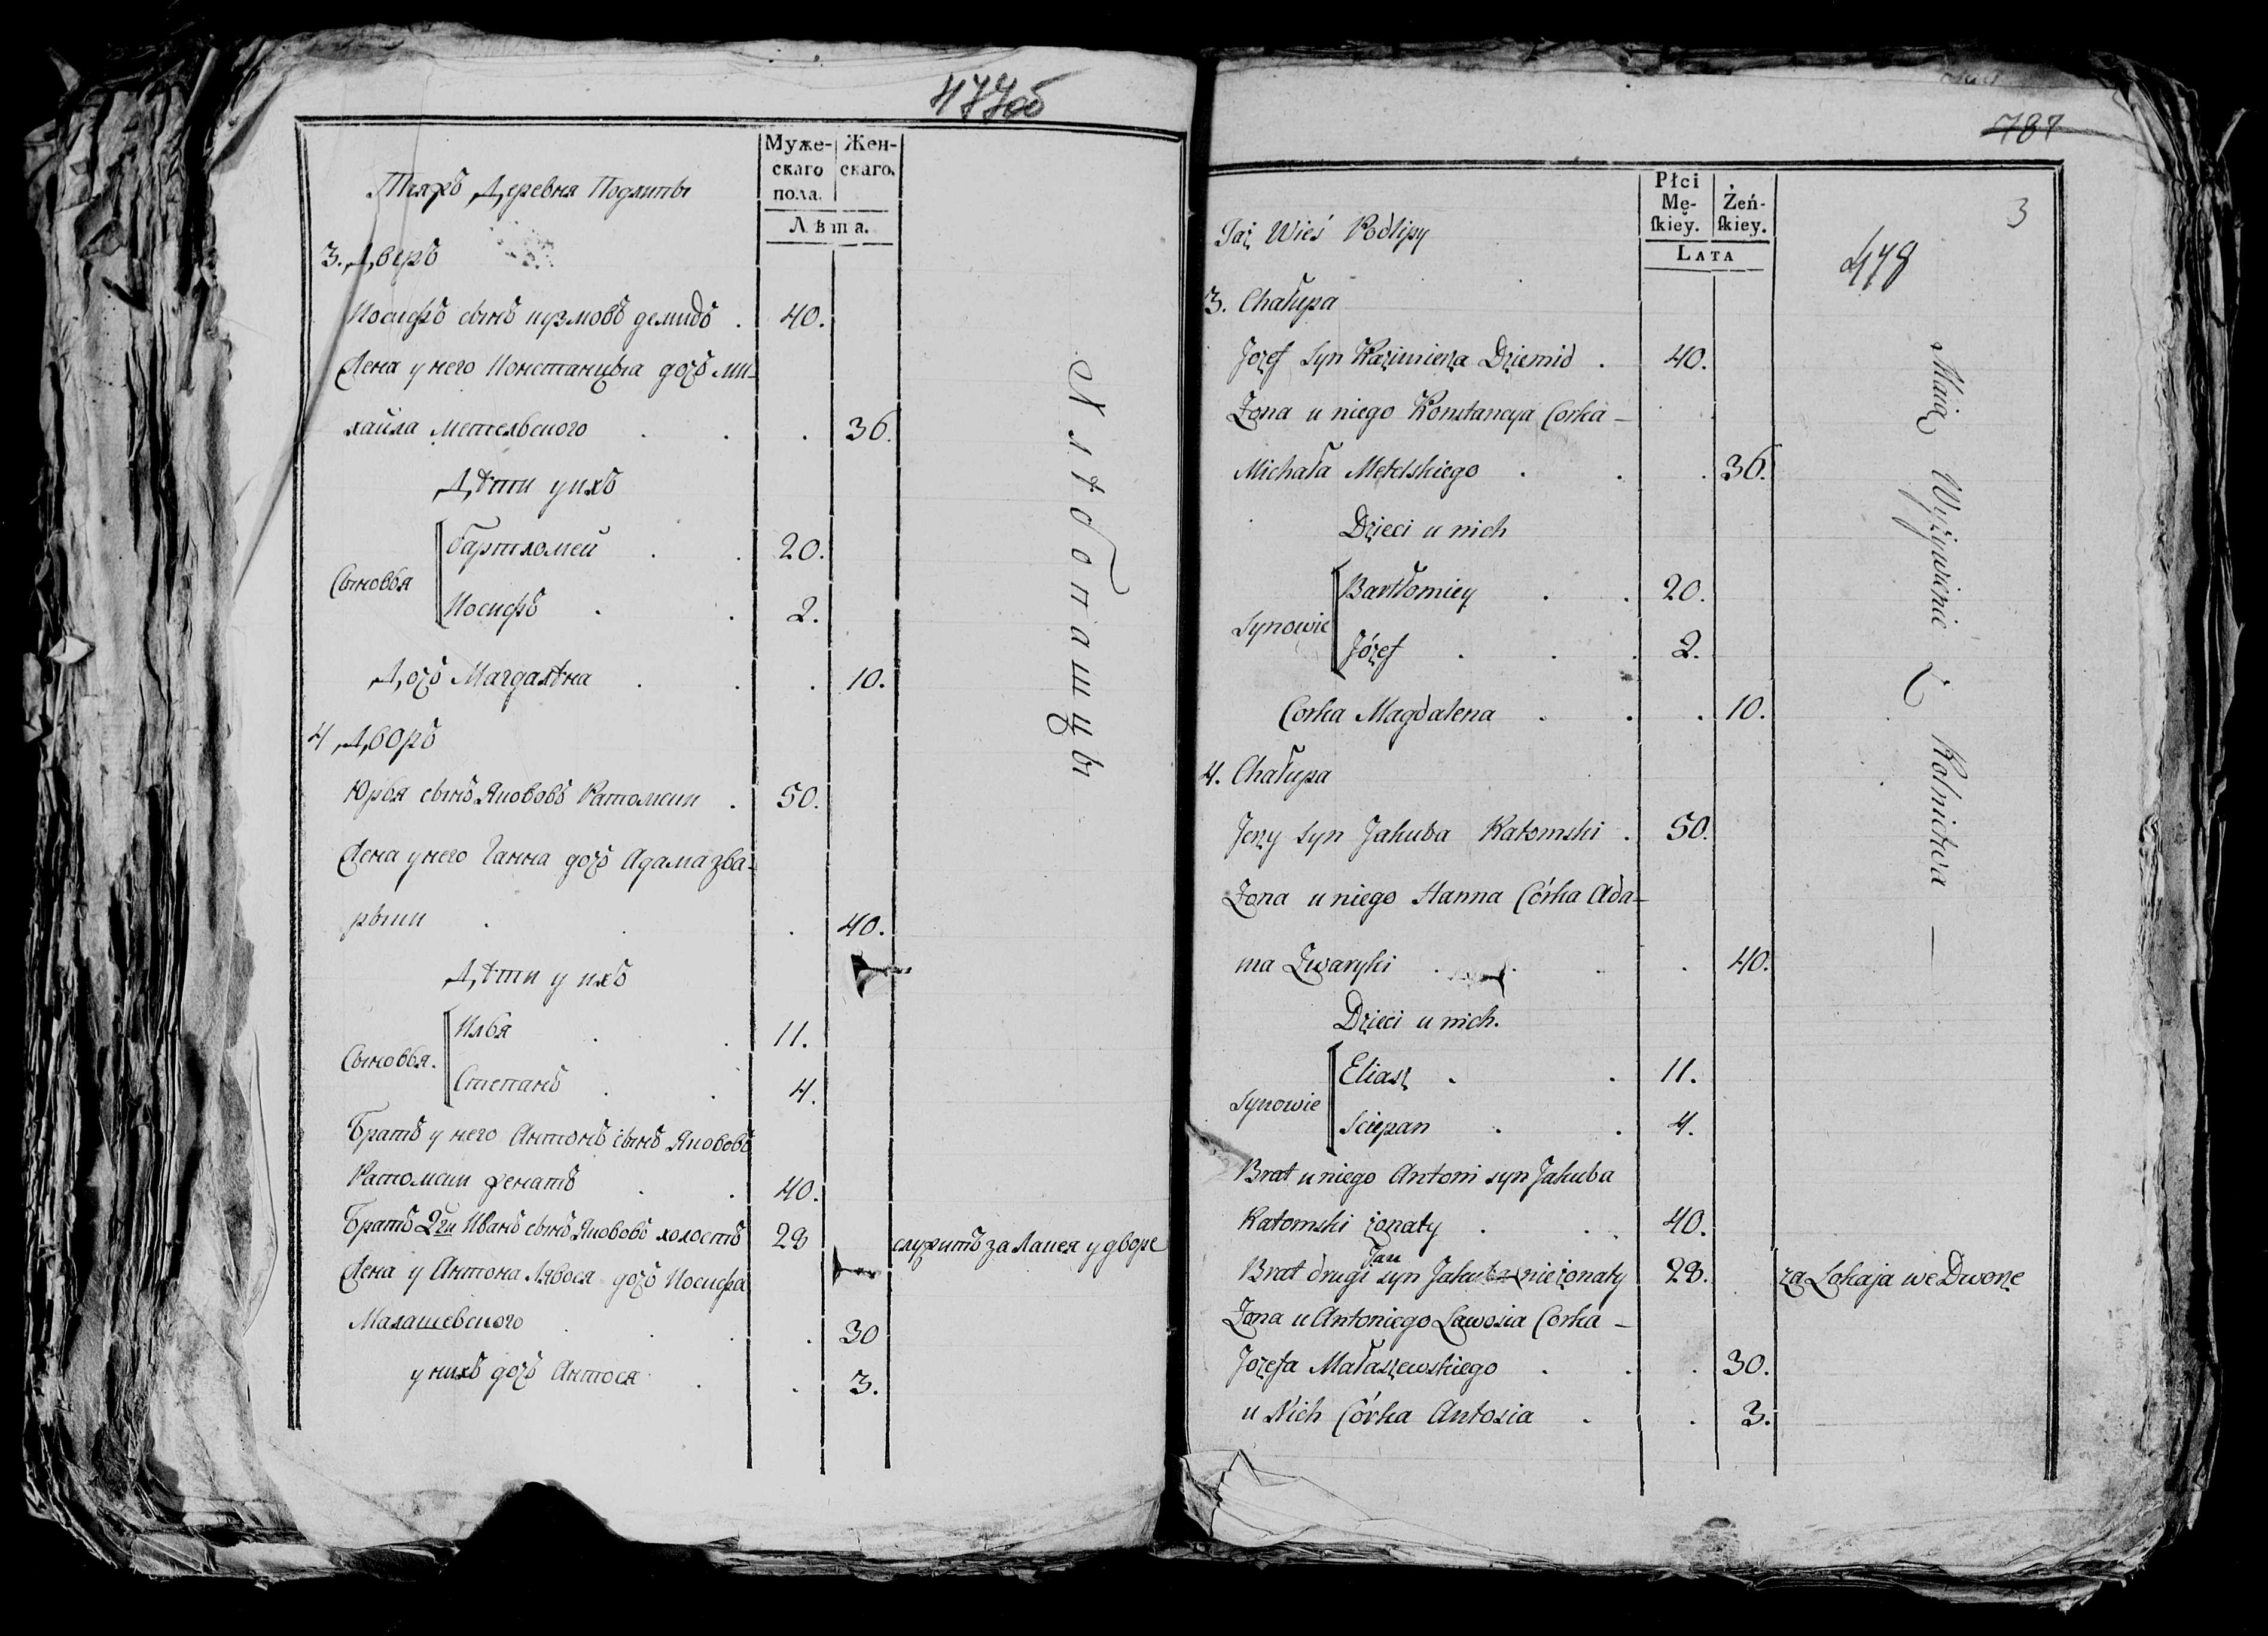 477об
Муже- Жен-
скаго скаго.
пола.
Лѣта.
Таяжъ Деревня Подлипы
3. Дворъ
Иосифъ сынъ кузмовъ демидъ . 40.
Жена у него Констанцыа дочь Ми-
хайла Метельского . . . 36.
Дѣти у ихъ
Сыновья
Бартломей . . 20.
Иосифъ . . 2.
Дочь Магдалѣна . . . 10.
4 Дворъ
Юрья сынъ Якововъ Катомски . 50.
Жена у него Ганна дочь Адама зва-
рыки . . . 40.
Дѣти у ихъ
Сыновья.
Илья . . 11.
Степанъ . . 4.
Братъ у него Антонъ сынъ Якововъ
Катомски женатъ . . 40.
Братъ 2ги Иванъ сынъ Якововъ холостъ 28 служитъ за Лакея у дворе
Жена у Антона Лявося дочь Иосифа
Малашевского . . . 30
у нихъ дочь Антося . . 3.
Хлѣбопашцы
787
3
478
Płci
Mę- Żeń-
skiey. skiey.
LATA
Taż Wieś Podlipy
3. Chałupa
Jozef Syn Kazimierza Dziemid . 40.
Żona u niego Konstancya Corka -
Michała Metelskiego . . . 36.
Dzieci u nich
Synowie
Bartłomiey . . 20.
Józef . . . 2.
Corka Magdalena . . . 10.
4. Chałupa
Jerzy syn Jakuba Katomski . 50.
Żona u niego Hanna Córka Ada-
ma Zwaryki . . . . 40.
Dzieci u nich.
Synowie
Eliasz . . 11.
Sciepan . . 4.
Brat u niego Antoni syn Jakuba
Katomski żonaty . . . 40.
Jan
Brat drugi syn Jakuba nieżonaty 28. za Lokaja we Dworze
Żona u Antoniego Lawosia Corka -
Jozefa Małaszewskiego . . . 30.
u Nich Córka Antosia . . 3.
Maią Wyżywienie Z Rolnictwa —